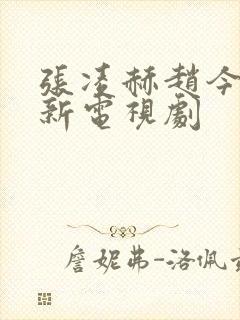 張凌赫趙今
新電視劇
詹妮弗-洛佩